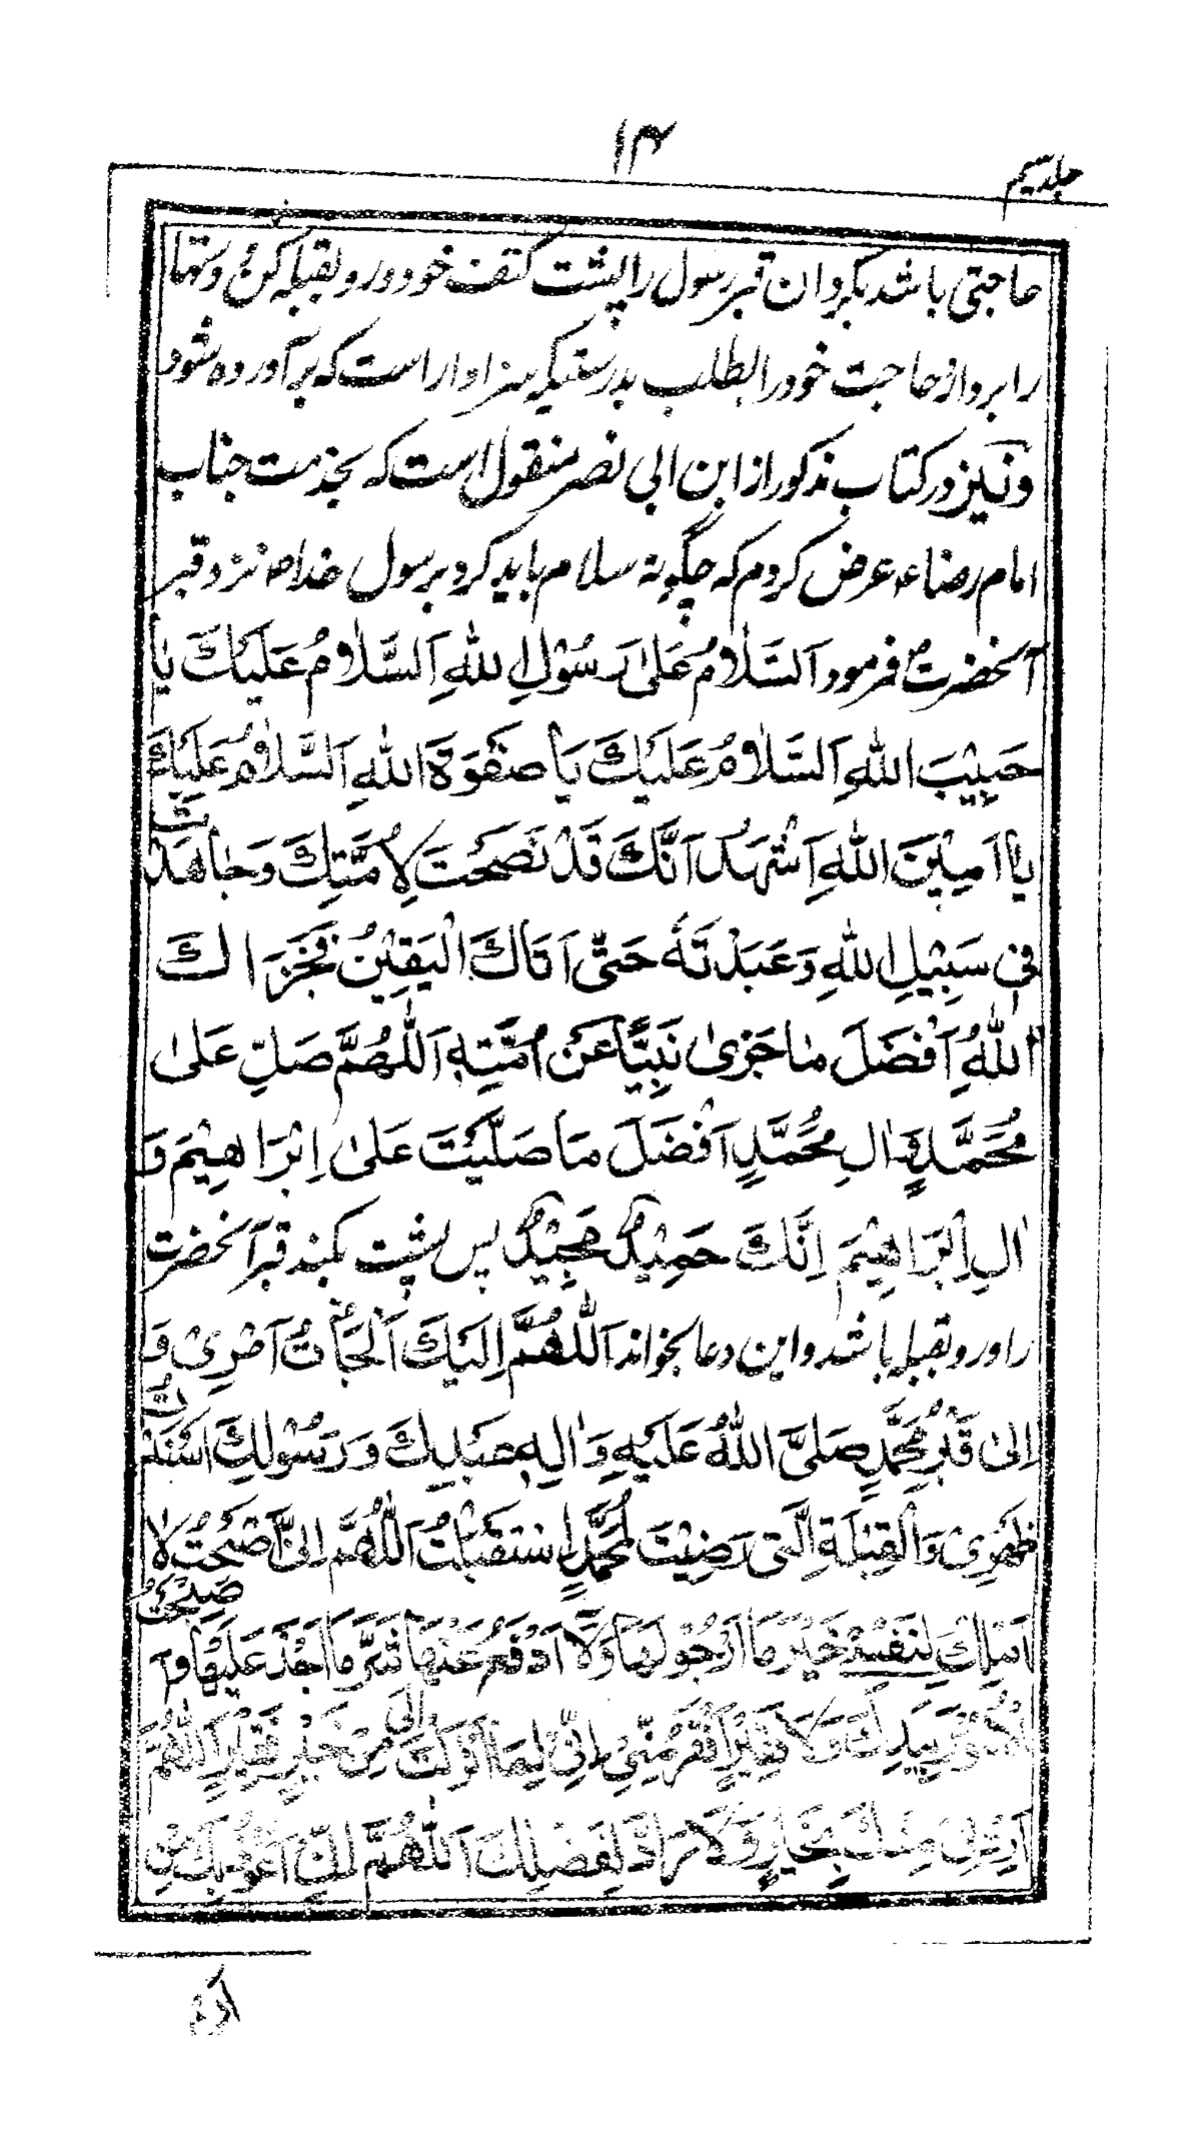 ۱۴
جلد سیم
حاجتی باشد بگردان قبر رسول را پشت کتف خود و رو بقبله کن و دستها
را بردار و حاجت خود را بطلب بدرستیکه سزاوار است که برآورده شود
و نیز در کتاب مذکور از ابن ابی نصر منقول است که بخدمت جناب
امام رضاء عرض کردم که چگونه سلام باید کرد بر رسول خدا ص نزد قبر
آنحضرت فرمود اَلسَّلامُ عَلىٰ رَسُوْلِ اللهِ اَلسَّلامُ عَلَيْكَ يا
حَبِيْبَ اللهِ اَلسَّلامُ عَلَيْكَ يا صَفْوَةَ اللهِ اَلسَّلامُ عَلَيْكَ
يا اَمِيْنَ اللهِ اَشْهَدُ اَنَّكَ قَدْ نَصَحْتَ لِاُمَّتِكَ وَجاهَدْتَ
فِى سَبِيْلِ اللهِ وَعَبَدْتَهُ حَتّى اَتاكَ الْيَقِيْنُ فَجَزاكَ
اللهُ اَفْضَلَ ما جَزىٰ نَبِيًّا عَنْ اُمَّتِهِ اَللّٰهُمَّ صَلِّ عَلىٰ
مُحَمَّدٍ وَّاٰلِ مُحَمَّدٍ اَفْضَلَ مَا صَلَّيْتَ عَلىٰ اِبْرَاهِيْمَ وَ
اٰلِ اِبْرَاهِيْمَ اِنَّكَ حَمِيْدٌ مَجِيْدٌ پس پشت بکند قبر آنحضرت
را و رو بقبله باشد و این دعا بخواند اَللّٰهُمَّ اِلَيْكَ اَلْجَأْتُ اَمْرِىْ وَ
اِلىٰ قَبْرِ مُحَمَّدٍ صَلَّى اللهُ عَلَيْهِ وَاٰلِهِ عَبْدِكَ وَرَسُوْلِكَ اَسْنَدْتُ
ظَهْرِىْ وَالْقِبْلَةِ الَّتِى رَضِيْتَ لِمُحَمَّدٍ اسْتَقْبَلْتُ اَللّٰهُمَّ اِنِّىْ اَصْبَحْتُ لا
اَمْلِكُ لِنَفْسِىْ خَيْرَ مَا اَرْجُوْ لَهَا وَلَا اَدْفَعُ عَنْهَا شَرَّ مَا اَحْذَرُ عَلَيْهَا وَ
الْاُمُوْرُ بِيَدِكَ وَلَا فَقِيْرَ اَفْقَرُ مِنِّىْ اِنِّىْ لِمَا اَنْزَلْتَ اِلَىَّ مِنْ خَيْرٍ فَقِيْرٌ اَللّٰهُمَّ
مِنْكَ بِخَيْرٍ وَلَا رَادَّ لِفَضْلِكَ اَللّٰهُمَّ اِنِّىْ اَعُوْذُ بِكَ مِنْ